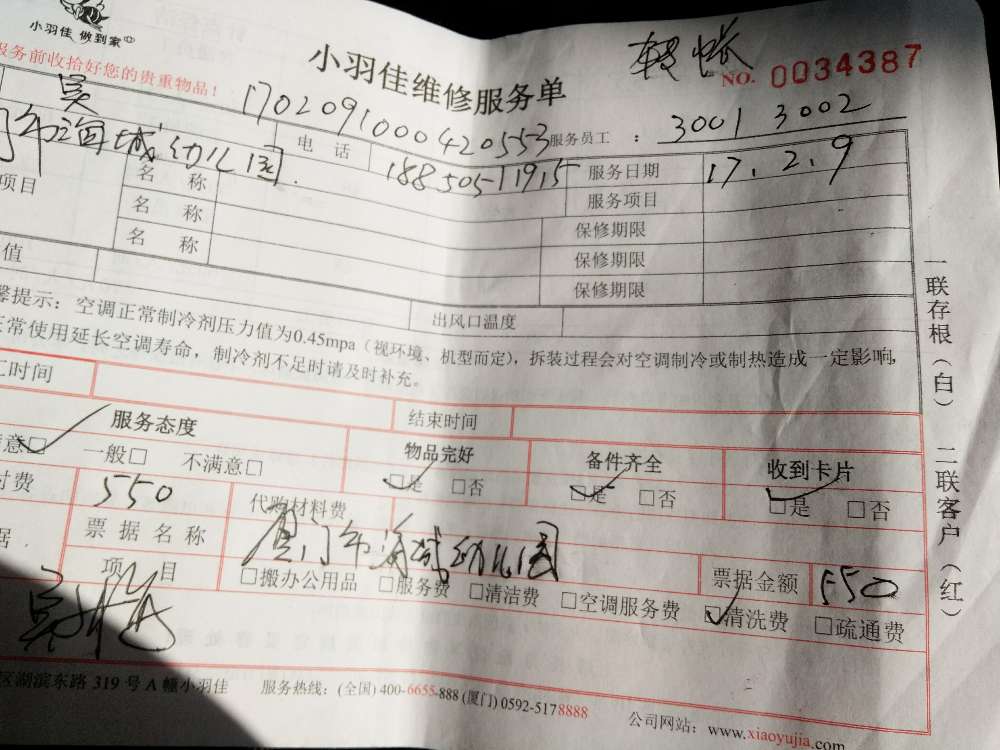 小羽佳 做到家
服务前收拾好您的贵重物品！
小羽佳维修服务单
转帐
NO. 0034387
吴
1702091000420553
服务员工 ： 3001 3002
门市海城幼儿园
电 话
18850511915
服务日期
17.2.9
项目
名 称
服务项目
名 称
保修期限
名 称
保修期限
保修期限
值
出风口温度
馨提示：空调正常制冷剂压力值为0.45mpa（视环境、机型而定），拆装过程会对空调制冷或制热造成一定影响，
正常使用延长空调寿命，制冷剂不足时请及时补充。
工时间
结束时间
服务态度
物品完好
备件齐全
收到卡片
意□ 一般□ 不满意□
□是 □否
□是 □否
□是 □否
付费
550
代购材料费
据
票据名称
厦门市海城幼儿园
票据金额
550
项 目
□搬办公用品 □服务费 □清洁费 □空调服务费 □清洗费 □疏通费
区湖滨东路 319 号 A 幢小羽佳
服务热线：(全国) 400-6655-888 (厦门) 0592-5178888
公司网站：www.xiaoyujia.com
一联存根（白） 二联客户（红）